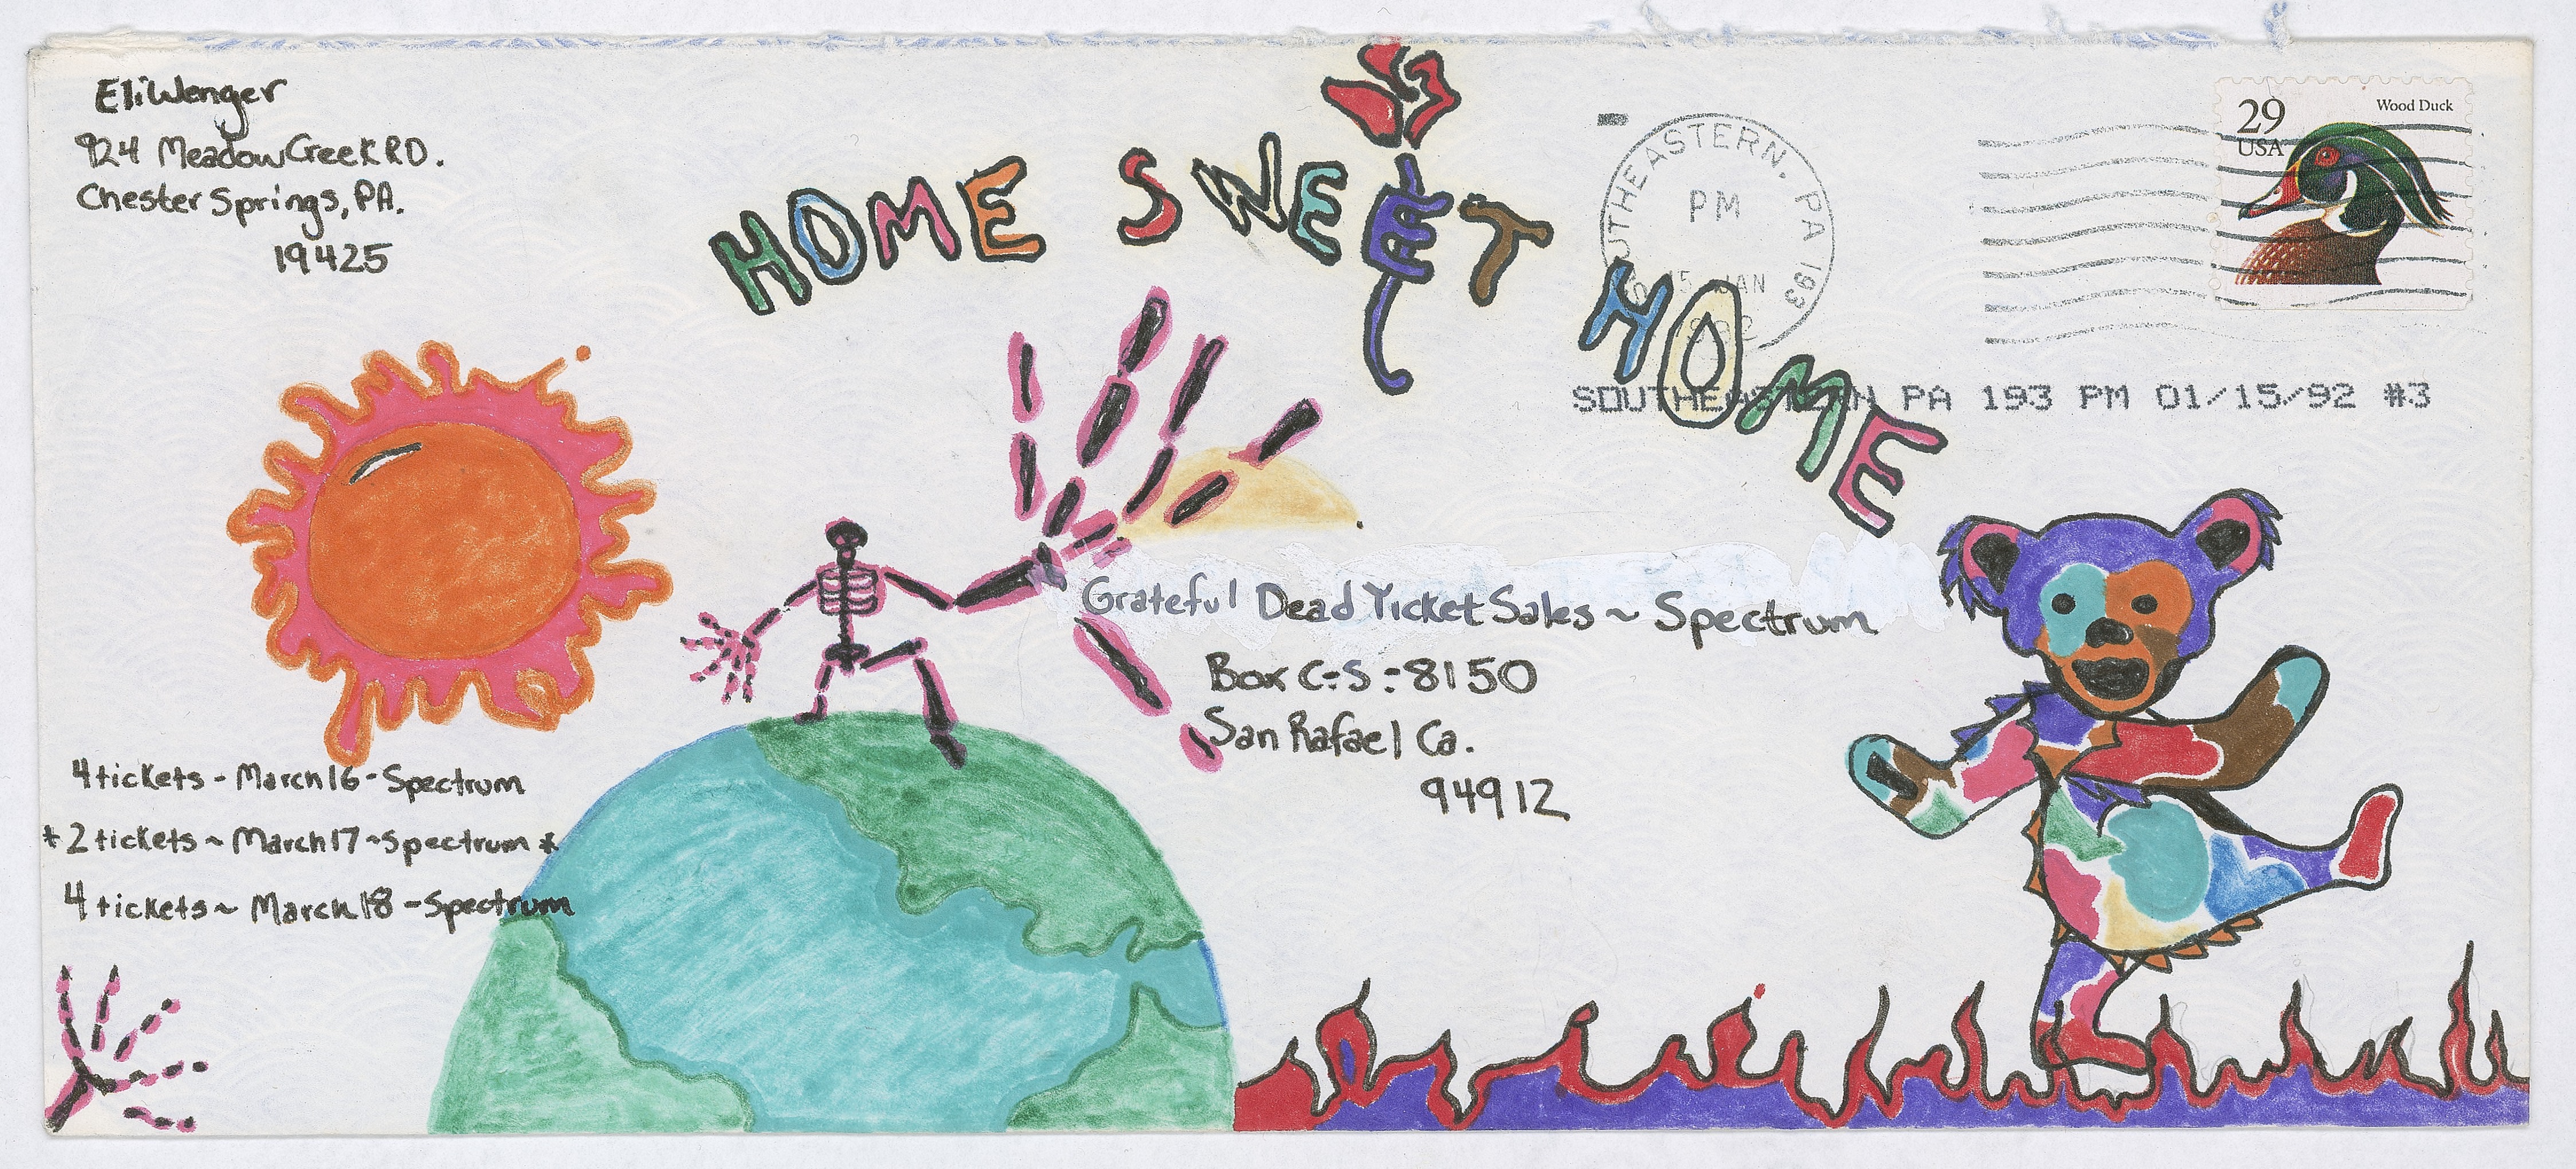 Eli Wenger
924 Meadow Creek RD.
Chester Springs, PA.
19425
HOME SWEET HOME
SOUTHEASTERN, PA 193
PM
15 JAN
1992
29
USA
Wood Duck
SOUTHEASTERN PA 193 PM 01/15/92 #3
Grateful Dead Ticket Sales ~ Spectrum
Box C-S-8150
San Rafael Ca.
94912
4 tickets - March 16 - Spectrum
*2 tickets ~ March 17 ~ Spectrum *
4 tickets ~ March 18 - Spectrum